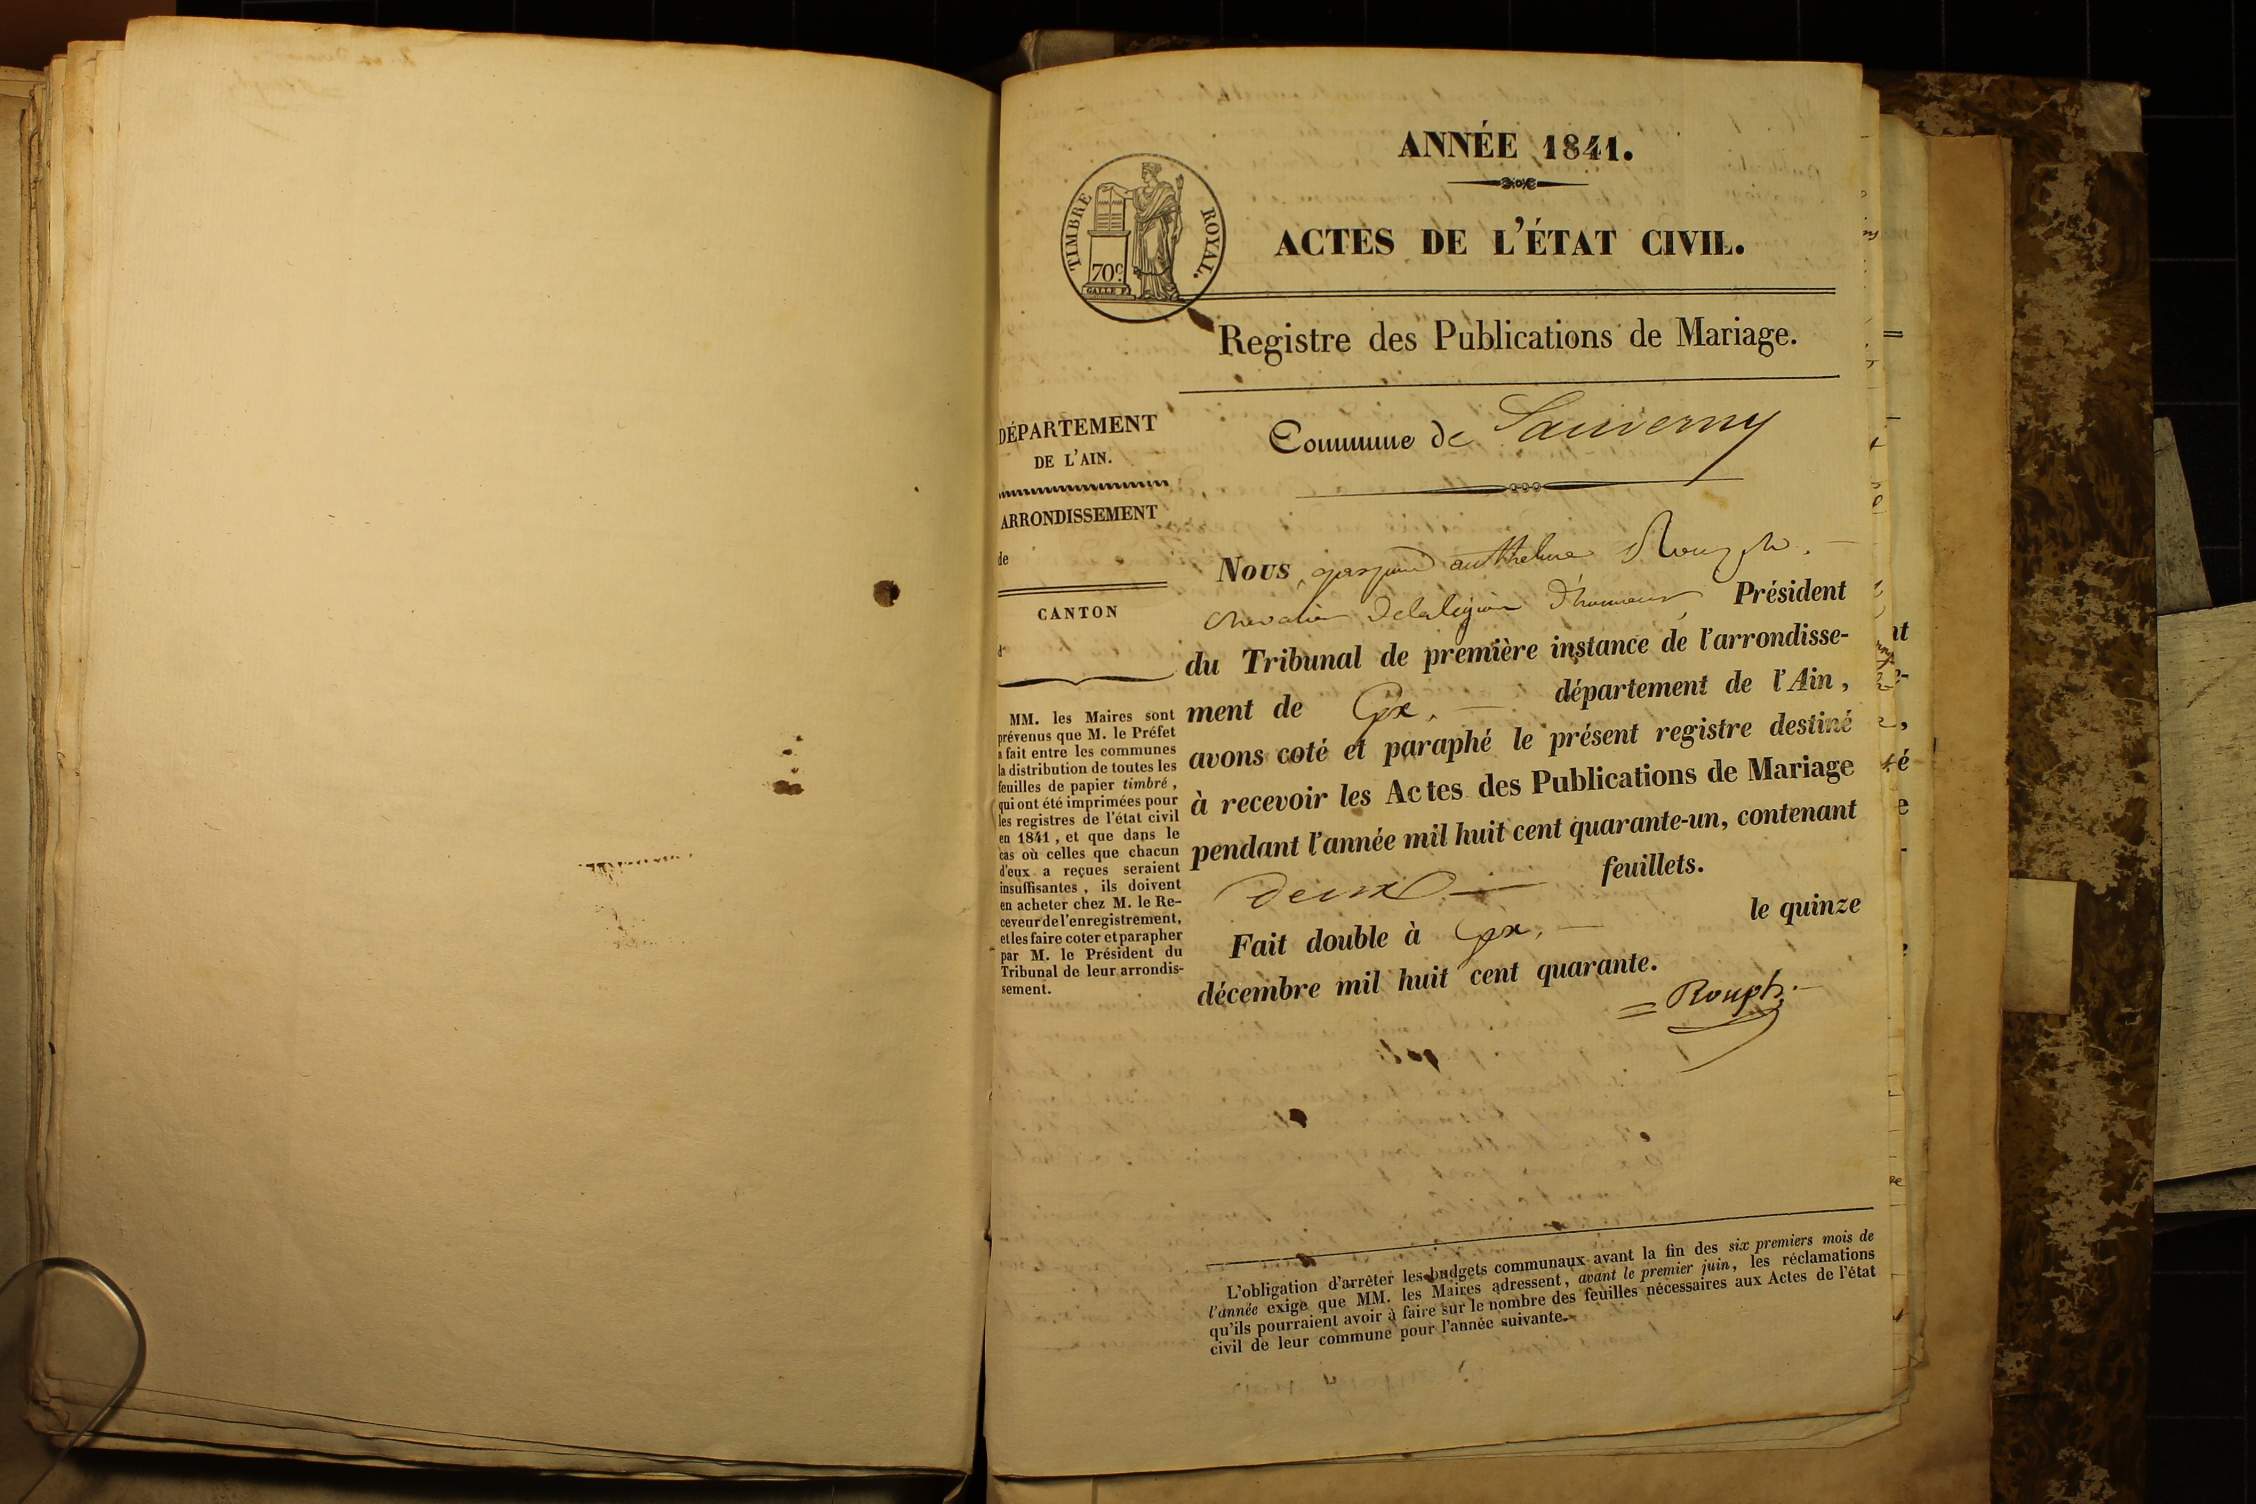 ANNÉE 1841.
TIMBRE ROYAL.
70c
GALLE F.
ACTES DE L'ÉTAT CIVIL.
Registre des Publications de Mariage.
Commune de Sauverny
DÉPARTEMENT
DE L'AIN.
ARRONDISSEMENT
de
CANTON
d'
MM. les Maires sont
prévenus que M. le Préfet
a fait entre les communes
la distribution de toutes les
feuilles de papier timbré,
qui ont été imprimées pour
les registres de l'état civil
en 1841, et que dans le
cas où celles que chacun
d'eux a reçues seraient
insuffisantes, ils doivent
en acheter chez M. le Re-
ceveur de l'enregistrement,
et les faire coter et parapher
par M. le Président du
Tribunal de leur arrondis-
sement.
Nous, gaspard anthelme Rouph.
chevalier de la légion d'honneur, Président
du Tribunal de première instance de l'arrondisse-
ment de Gex. département de l'Ain,
avons coté et paraphé le présent registre destiné
à recevoir les Actes des Publications de Mariage
pendant l'année mil huit cent quarante-un, contenant
deux feuillets.
Fait double à Gex, le quinze
décembre mil huit cent quarante.
Rouph.
L'obligation d'arrêter les budgets communaux avant la fin des six premiers mois de
l'année exige que MM. les Maires adressent, avant le premier juin, les réclamations
qu'ils pourraient avoir à faire sur le nombre des feuilles nécessaires aux Actes de l'état
civil de leur commune pour l'année suivante.